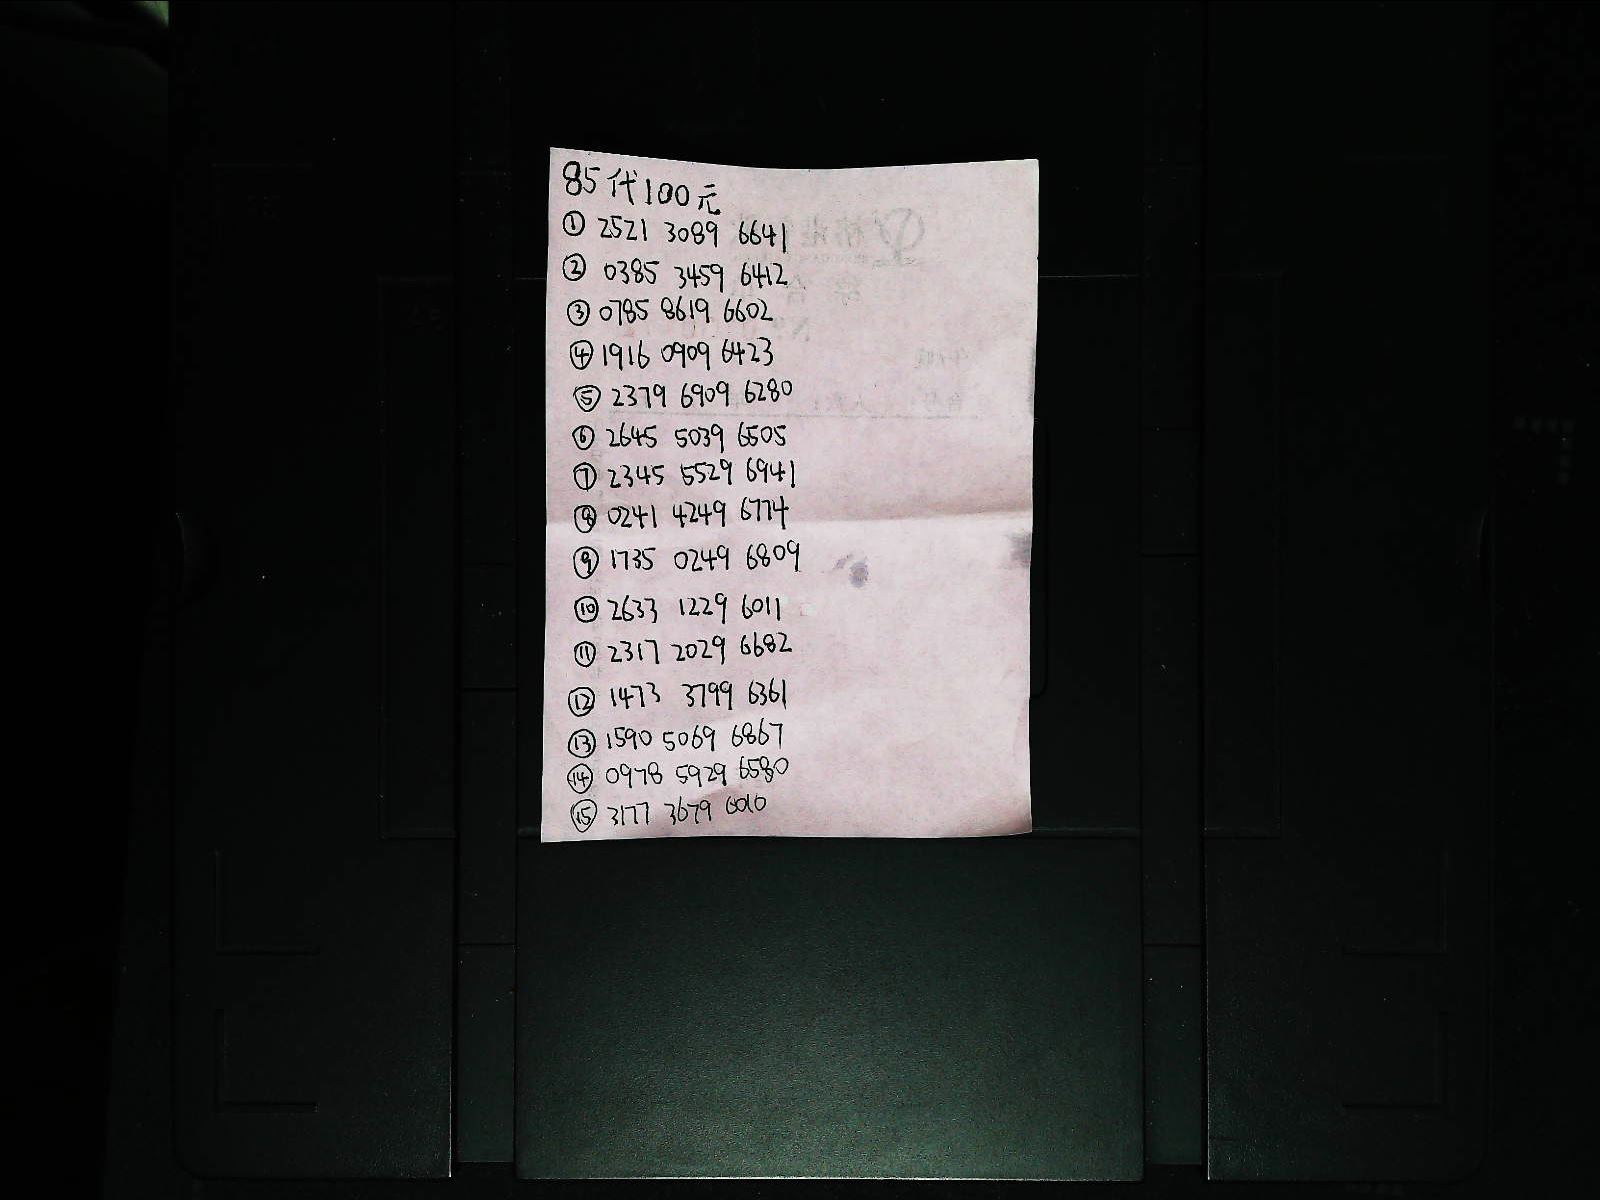 85代100元
① 2521 3089 6641
② 0385 3459 6412
③ 0785 8619 6602
④ 1916 0909 6423
⑤ 2379 6909 6280
⑥ 2645 5039 6505
⑦ 2345 5529 6941
⑧ 0241 4249 6774
⑨ 1735 0249 6809
⑩ 2633 1229 6011
⑪ 2317 2029 6682
⑫ 1473 3799 6361
⑬ 1590 5069 6867
⑭ 0978 5929 6580
⑮ 3177 3679 6010